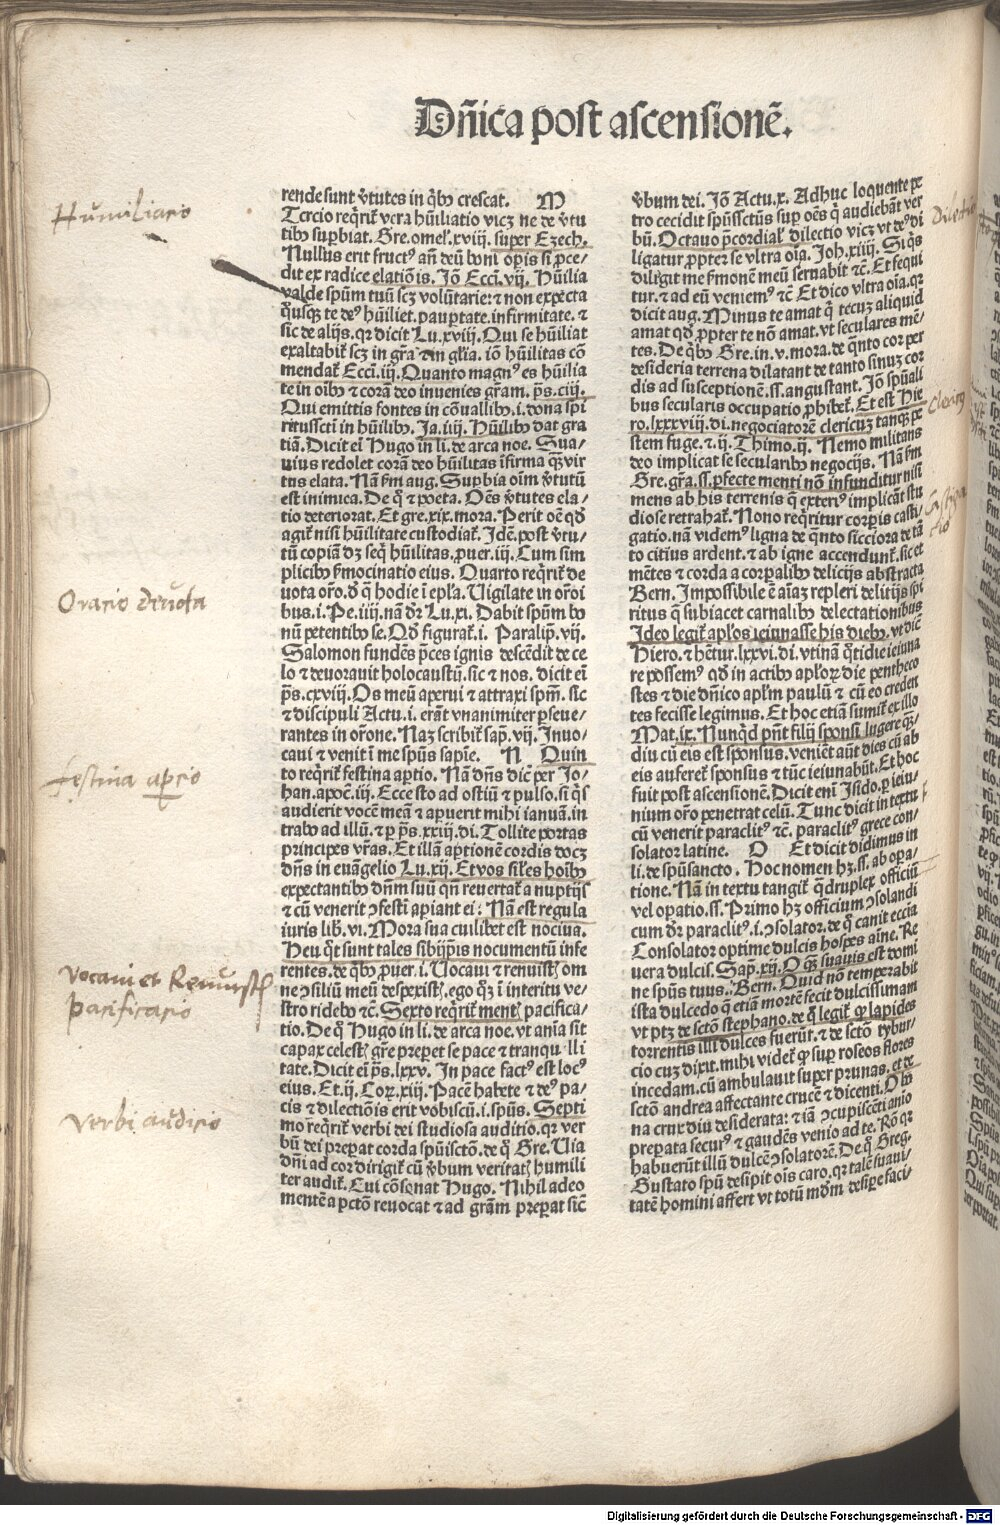 Dn̄ica post ascensionē.
rende sunt v̓tutes in qb᷒ crescat. M
Tercio reqrit᷒ vera hūiliatio vicꝫ ne de v̓tu
tib᷒ sup̄biat. Gre. omel̓. xviij. super Ezech.
Nullus erit fruct᷒ an̄ deū boni opis si ꝓce⸗
dit ex radice elatiōis. Iō Ecci. vij. Hūilia
valde spūm tuū scꝫ volūtarie: ⁊ non expecta
qusqꝫ te de᷒ hūiliet. paup̄tate. infirmitate. ⁊
sic de alijs. qꝛ dicit Lu. xviij. Qui se hūiliat
exaltabit᷒ scꝫ in gr̄a ⁊ in gl̓ia. iō hūilitas cō
mendat᷒ Ecci. iij. Quanto magn᷒ es hūilia
te in oīb᷒ ⁊ corā deo inuenies gr̄am. p̄s. ciij.
Qui emittis fontes in cōuallib᷒. i. dona spi
ritussct̄i in hūilib᷒. Ja. iiij. Hūilib᷒ dat gra
tiā. Dicit eī Hugo in li. de arca noe. Sua⸗
uius redolet corā deo hūilitas īfirma qꝫ vir
tus elata. Nā fm̄ aug. Supbia oīm v̓tutū
est inimica. De q̄ ⁊ poeta. Oēs v̓tutes ela⸗
tio deteriorat. Et gre. xix. mora. Perit oē qd̓
agit᷒ nisi hūilitate custodiat᷒. Idē. post v̓tu⸗
tū copiā dꝫ seq̄ hūilitas. ꝓuer. iij. Cum sim
plicib᷒ ẜmocinatio eius. Quarto reqrit᷒ de
uota or̄o. d̓ q̄ hodie ī ep̄la. Uigilate in or̄oi
bus. i. Pe. iiij. nā dr̄ Lu. xi. Dabit spūm bo
nū petentib᷒ se. Qd̓ figurat᷒. i. Paralip̄. vij.
Salomon fundēs p̄ces ignis descēdit de ce
lo ⁊ deuorauit holocaustū. sic ⁊ nos. dicit eī
p̄s. cxviij. Os meū aperui ⁊ attraxi spm̄. sic
⁊ discipuli Actu. i. erāt vnanimiter ꝑseue⸗
rantes in or̄one. Naꝫ scribit᷒ sap̄. vij. Inuo⸗
caui ⁊ venit ī me spūs sapīe. N Quin
to reqrit᷒ festina aptio. Nā dn̄s dic̄ per Jo⸗
han. apoc̄. iij. Ecce sto ad ostiū ⁊ pulso. si qs
audierit vocē meā ⁊ apuerit mihi ianuā. in
trabo ad illū. ⁊ ꝑ p̄s. xxiij. di. Tollite portas
principes vr̄as. Et illā aptionē cordis docꝫ
dn̄s in euāgelio Lu. xij. Et vos sil̓es hoīb᷒
expectantib᷒ dn̄m suū qn̄ reuertat᷒ a nuptijs
⁊ cū venerit ꝯfestī apiant ei: Nā est regula
iuris lib. vi. Mora sua cuilibet est nociua.
Heu q̄t sunt tales sibijp̄is nocumentū infe
rentes. de qb᷒ ꝓuer. i. Uocaui ⁊ renuistꝭ om
ne ꝯsiliū meū despexistꝭ. ego qꝫ ī interitu ve⸗
stro ridebo ⁊c̄. Sexto reqrit᷒ mentꝭ pacifica⸗
tio. De q̄ Hugo in li. de arca noe. vt anīa sit
capax celestꝭ gr̄e prepet se pace ⁊ tranqu illi
tate. Dicit eī p̄s. lxxv. In pace fact᷒ est loc᷒
eius. Et. ij. Coꝛ. xiij. Pacē habete ⁊ de᷒ pa⸗
cis ⁊ dilectiōis erit vobiscū. i. spūs. Septi
mo reqrit᷒ verbi dei studiosa auditio. qꝛ ver
bū dei prepat corda spūissct̄o. de q̄ Gre. Uia
dn̄i ad cor dirigit᷒ cū v̓bum veritatꝭ humili
ter audit᷒. Cui cōsonat Hugo. Nihil adeo
mentē a pctō reuocat ⁊ ad grām prepat sic̄
v̓bum dei. Iō Actu. x. Adhuc loquente pe
tro cecidit spūssctūs sup oēs q̄ audiebāt ver
bū. Octauo p̄cordial̓ dilectio vicꝫ vt de᷒ di
ligatur ꝓpter se vltra oīa. Joh. xiiij. Si qs
diligit me ẜmonē meū seruabit ⁊c̄. Et sequi
tur. ⁊ ad eū veniem᷒ ⁊c̄ Et dico vltra oīa. qꝛ
dicit aug. Minus te amat q̄ tecuꝫ aliquid
amat qd̓ ꝓpter te nō amat. vt seculares mē⸗
tes. De qb᷒ Gre. in. v. mora. de qnto cor per
desideria terrena dilatant de tanto sinuꝫ cor
dis ad susceptionē. ss. angustant. Iō spūali
bus secularis occupatio ꝓhibet᷒. Et est Hie
ro. lxxxviij. di. negociatorē clericuꝫ tanqꝫ pe
stem fuge. ⁊. ij. Thimo. ij. Nemo militans
deo implicat se secularib᷒ negocijs. Nā fm̄
Gre. gr̄a. ss. ꝑfecte menti nō infunditur nisi
mens ab his terrenis q̄ exteri᷒ implicāt stu
diose retrahat᷒. Nono reqritur corpis casti⸗
gatio. nā videm᷒ ligna de qnto sicciora de tā
to citius ardent. ⁊ ab igne accendunt᷒. sic et
mētes ⁊ corda a corpalib᷒ delicijs abstracta
Bern. Impossibile ē aīaꝫ repleri delitijs spi
ritus q̄ subiacet carnalib᷒ delectationibus
Ideo legit᷒ apl̓os ieiunasse his dieb᷒. vt dic̄
Hiero. ⁊ hētur. lxxvi. di. vtinā qtidie ieiuna
re possem᷒ qd̓ in actib᷒ apl̓oꝝ die pentheco
stes ⁊ die dn̄ico apl̓m paulū ⁊ cū eo creden
tes fecisse legimus. Et hoc etiā sumit᷒ ex illo
Mat. ix. Nunqd̓ pn̄t filij sponsi lugere qꝫ⸗
diu cū eis est sponsus. veniēt aūt dies cū ab
eis auferet᷒ sponsus ⁊ tūc ieiunabūt. Et hoc
fuit post ascensionē. Dicit enī Isido. ꝑ ieiu⸗
nium or̄o penetrat celū. Tunc dicit in textu
cū venerit paraclit᷒ ⁊c̄. paraclit᷒ grece con⸗
solator latine. O Et dicit didimus in
li. de spūsancto. Hoc nomen hꝫ. ss. ab opa⸗
tione. Nā in textu tangit᷒ q̄druplex officiū
vel opatio. ss. Primo hꝫ officium ꝯsolandi
cum dr̄ paraclit᷒. i. ꝯsolator. de q̄ canit eccīa
Consolator optime dulcis hospes aīne. Re
uera dulcis. Sap̄. xij. O qꝫ suauis est domi
ne spūs tuus. Bern. Quid nō temperabit
ista dulcedo q̄ etiā mortē fecit dulcissimam
vt ptꝫ de sctō stephano. de q̄ legit᷒ ꝙ lapides
torrentis illi dulces fuerūt. ⁊ de sctō tybur⸗
cio cuꝫ dixit. mihi videt᷒ ꝙ sup roseos flores
incedam. cū ambulauit super prunas. et de
sctō andrea affectante crucē ⁊ dicenti. O bo
na crux diu desiderata: ⁊ iā ꝯcupiscēti anio
prepata secur᷒ ⁊ gaudēs venio ad te. Rō qꝛ
habuerūt illū dulcē ꝯsolatorē. De q̄ Greg.
Gustato spū desipit oīs caro. qꝛ talē suaui⸗
tatē homini affert vt totū mdm̄ desipe faci⸗
Humiliatio
Oratio deuota
festina apertio
vocaui et Renuistꝭ
pacificatio
verbi auditio
Dilectio
Castiga
tio
Digitalisierung gefördert durch die Deutsche Forschungsgemeinschaft - DFG